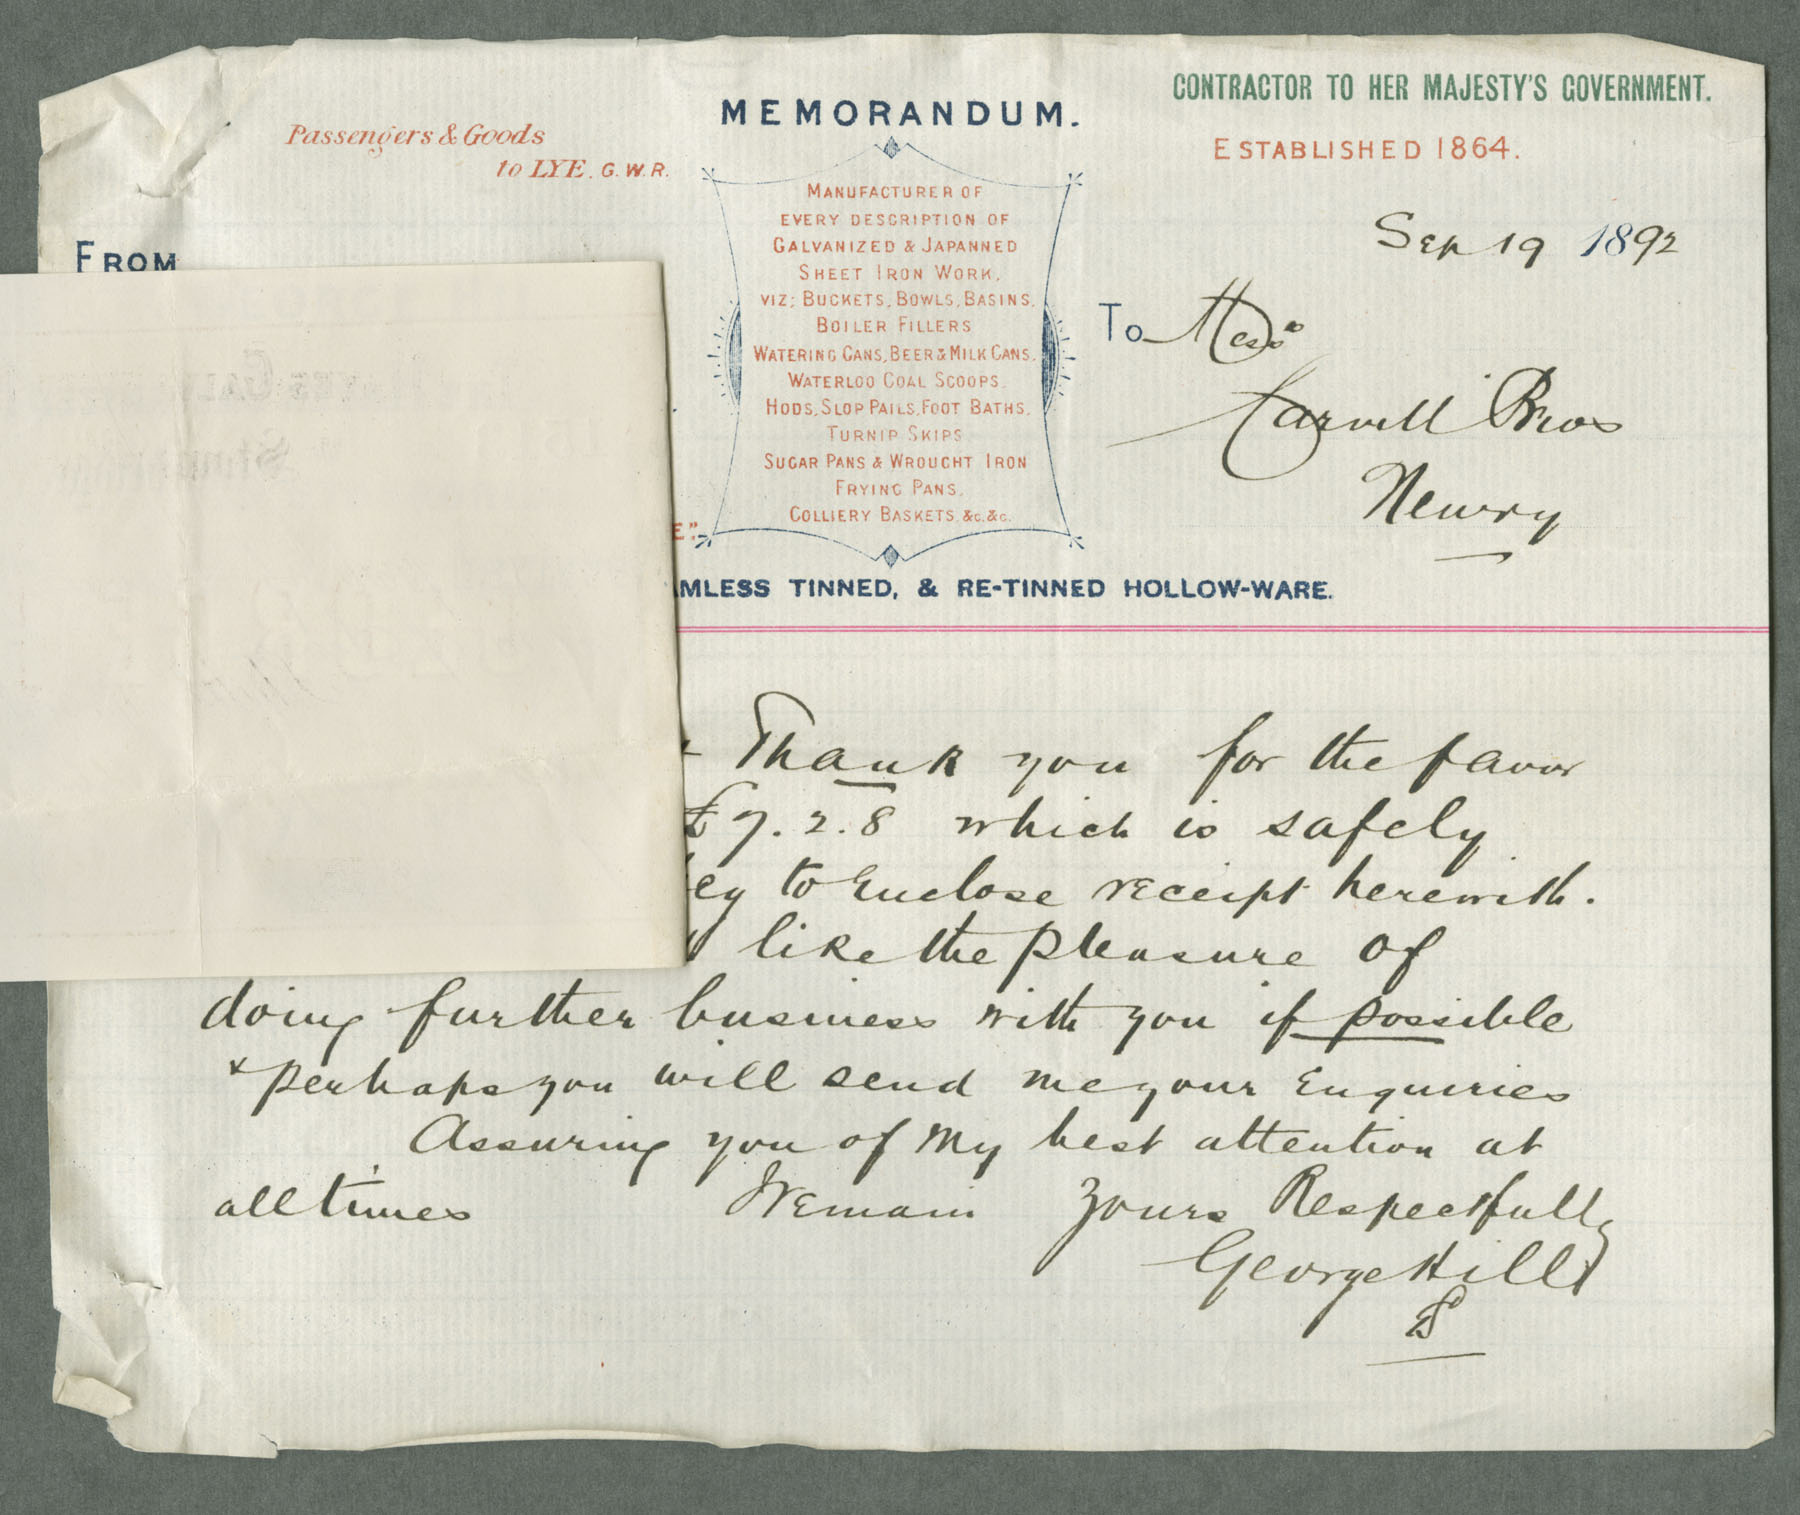 CONTRACTOR TO HER MAJESTY'S GOVERNMENT.
MEMORANDUM.
Passengers & Goods
to LYE. G.W.R.
ESTABLISHED 1864.
FROM
MANUFACTURER OF
EVERY DESCRIPTION OF
GALVANIZED & JAPANNED
SHEET IRON WORK,
VIZ; BUCKETS, BOWLS, BASINS,
BOILER FILLERS
WATERING CANS, BEER & MILK CANS,
WATERLOO COAL SCOOPS.
HODS, SLOP PAILS, FOOT BATHS,
TURNIP SKIPS
SUGAR PANS & WROUGHT IRON
FRYING PANS.
COLLIERY BASKETS &c. &c.
Sep 19 1892
To Messrs
Carvill Bros
Newry
E".
AMLESS TINNED, & RE-TINNED HOLLOW-WARE.
Thank you for the favor
£7.2.8 which is safely
to Enclose receipt herewith.
like the pleasure of
doing further business with you if possible
& perhaps you will send me your Enquiries
Assuring you of My best attention at
all times I remain Yours Respectfully
George Hill